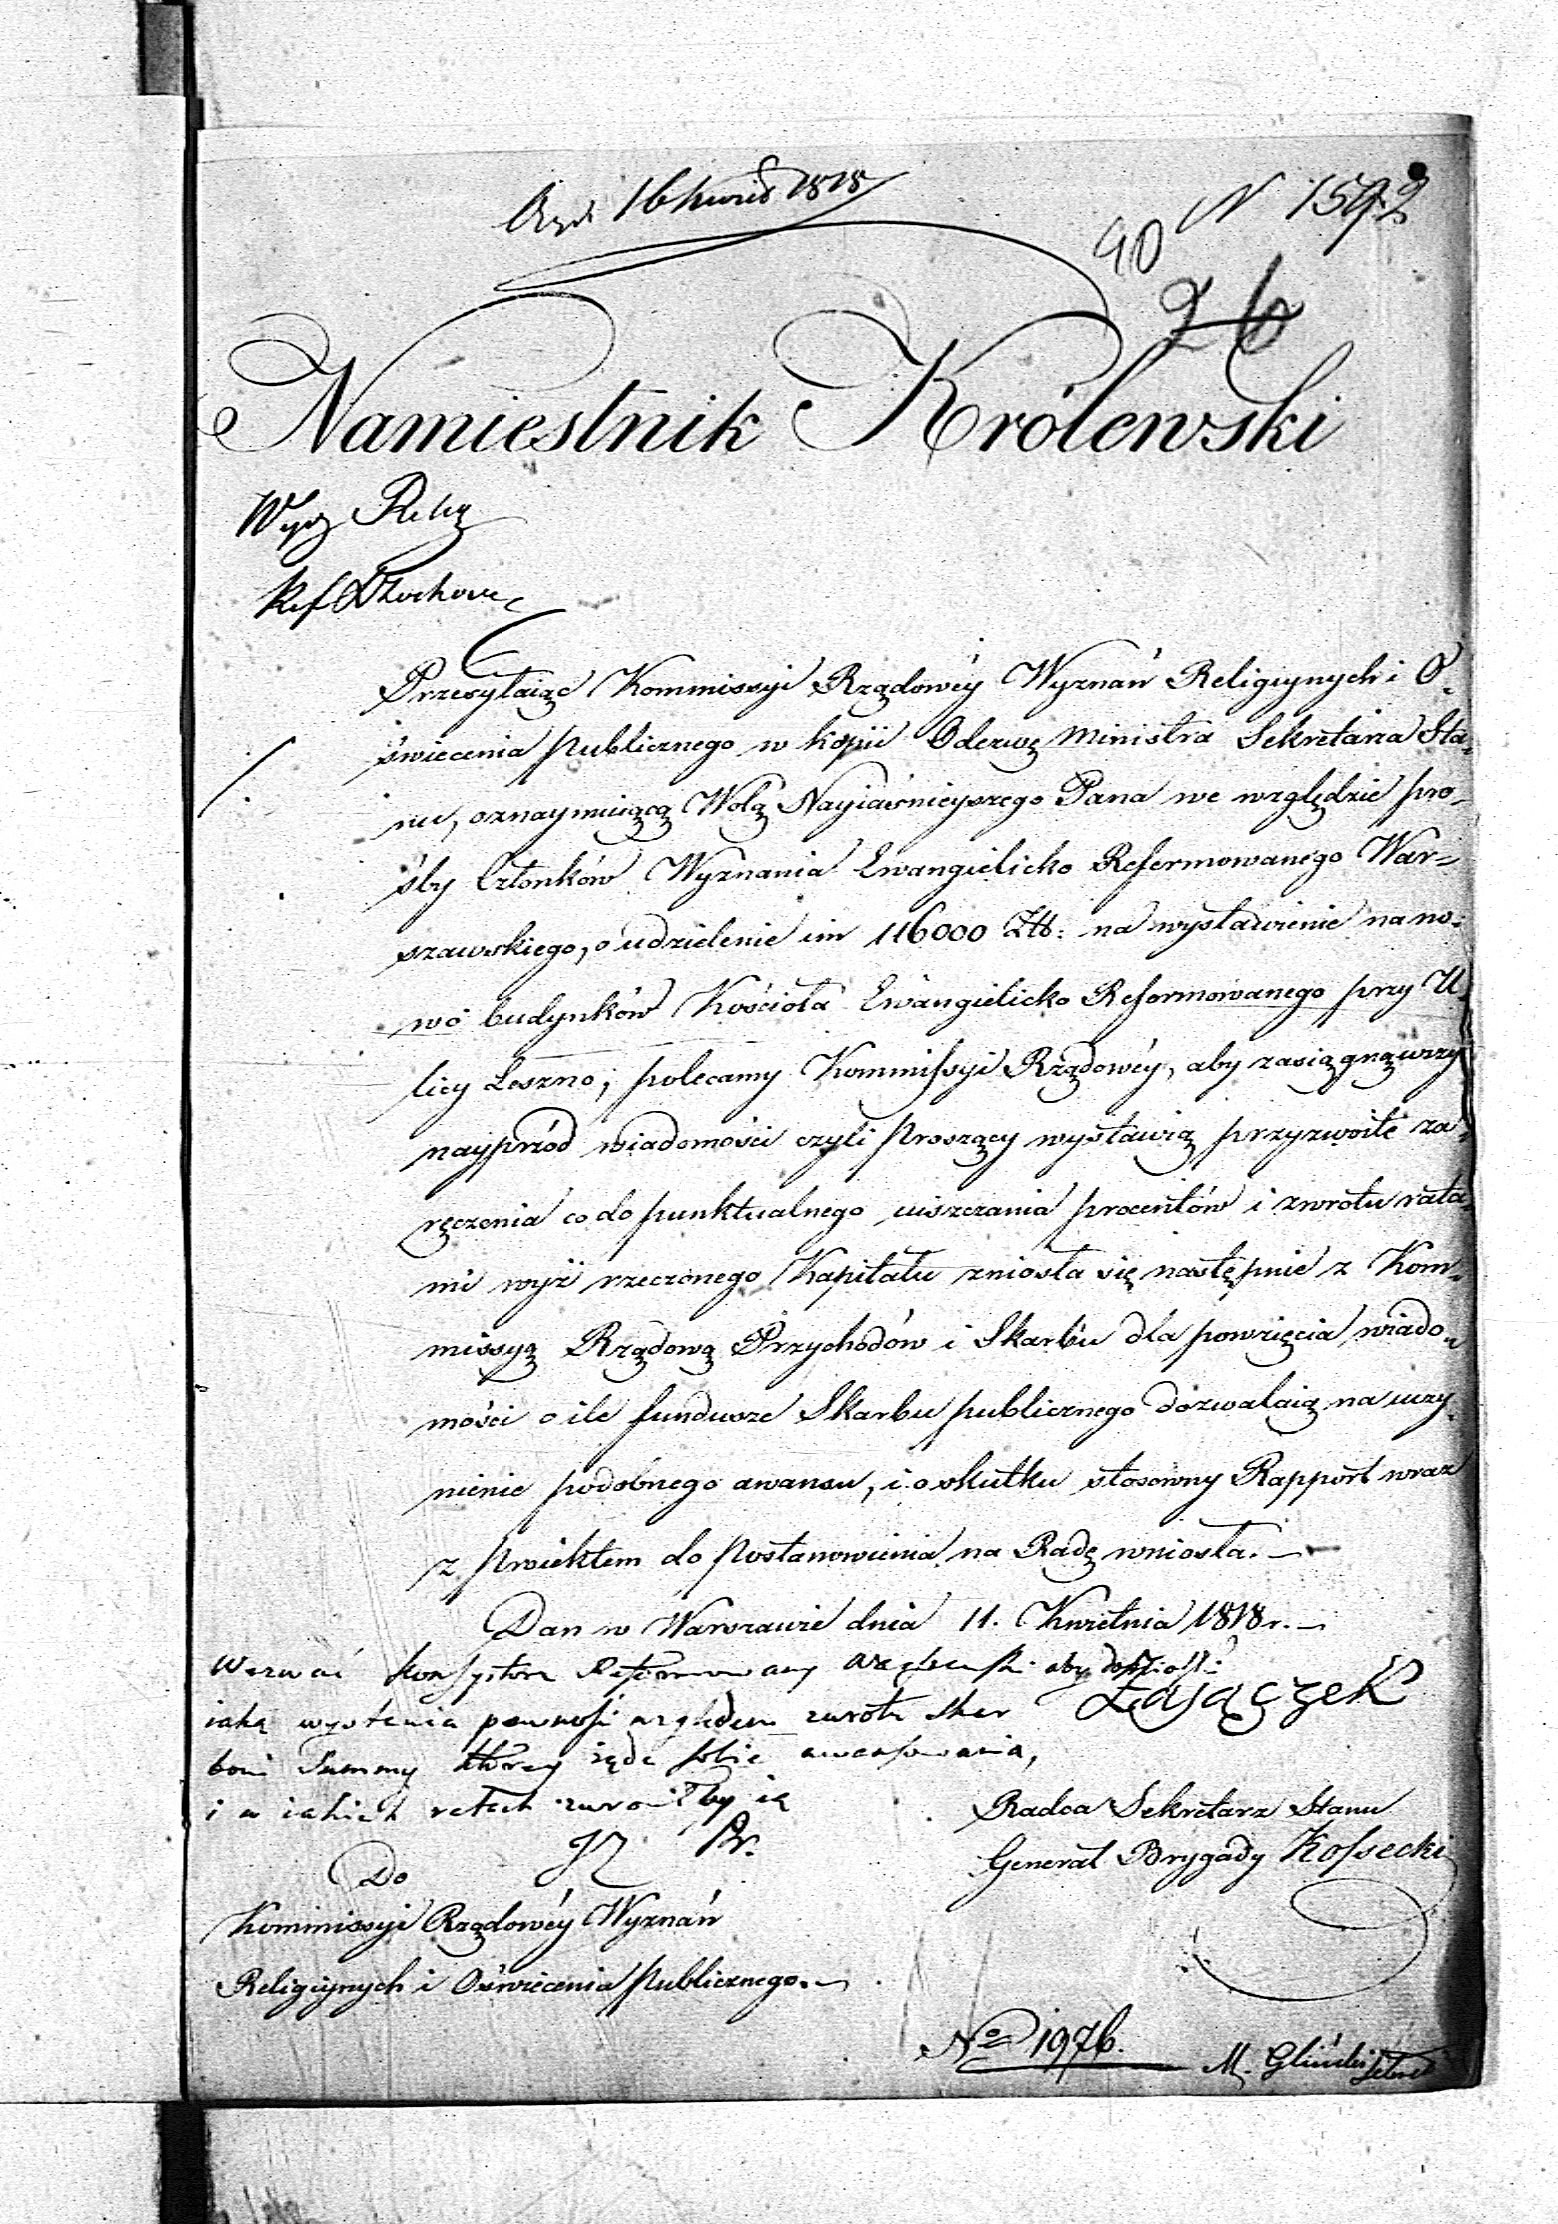 16 Kwiet 1818
N 1592
90
26
Namiestnik Królewski
Wydz Relig
Ref
Przesyłaiąc Kommissyi Rządowéy Wyznań Religiynych i O-
świecenia publicznego w kopii Odezwę Ministra Sekretarza Sta-
nu, oznaymuiącą Wolą Nayiaśnieyszego Pana we względzie pro-
śby Członków Wyznania Ewangielicko Reformowanego War=
szawskiego, o udzielenie im 116000 Złł: na wystawienie na no-
wo budynków Kościoła Ewangielicko Reformowanego przy U-
licy Leszno; polecamy Kommissyi Rządowéy, aby zasiągnąwszy
nayprzód wiadomości czyli Proszący wystawią przyzwoite za-
ręczenia co do punktualnego uiszczania procentów i zwrotu rata-
mi wyż rzeczonego Kapitału zniosła się następnie z Kom-
missyą Rządową Przychodów i Skarbu dla powzięcia wiado-
mości o ile fundusze Skarbu publicznego dozwalaią na uczy-
nienie podobnego awansu, i o skutku stosowny Rapport wraz
z proiektem do postanowienia na Radę wniosła. —
Dan w Warszawie dnia 11. Kwietnia 1818 r. —
Wezwać Konsystorz Reformowany aby
iaką wystawia pewność względem zwrotu Skar
bowi Summy którey żąda sobie awansowania,
i w iakich ratach zwróciłby ią
Zajączek
Radca Sekretarz Stanu
Generał Brygady Kossecki
Do
Kommissyi Rządowéy Wyznań
Religiynych i Oświecenia publicznego. —
No 1976.
M. Gliński